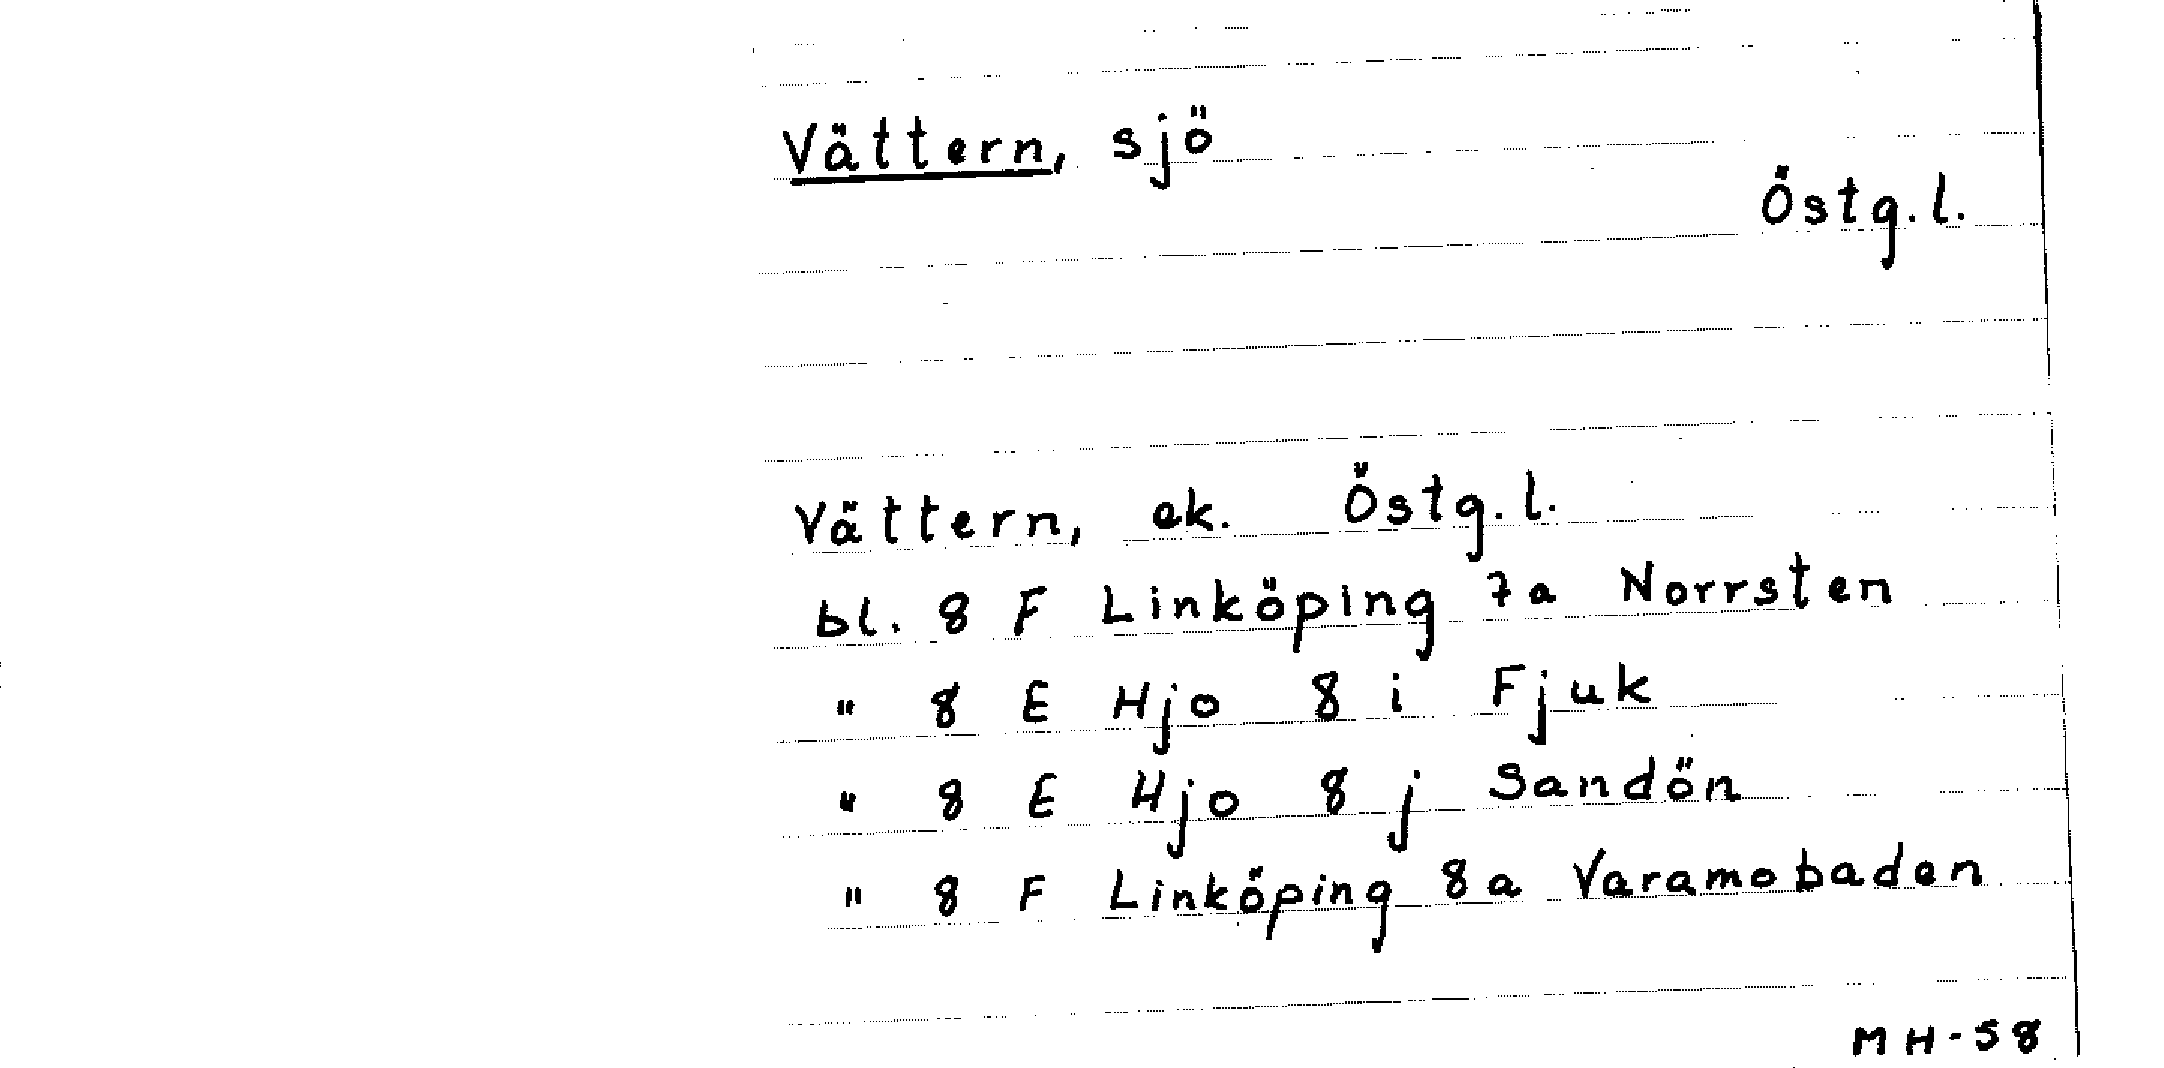 Vättern, sjö
Östg.l.
Vättern, ek. Östg.l.
bl. 8 F Linköping 7a Norrsten
" 8 E Hjo 8 i Fjuk
" 8 E Hjo 8 j Sandön
" 8 F Linköping 8a Varamobaden
MH-58